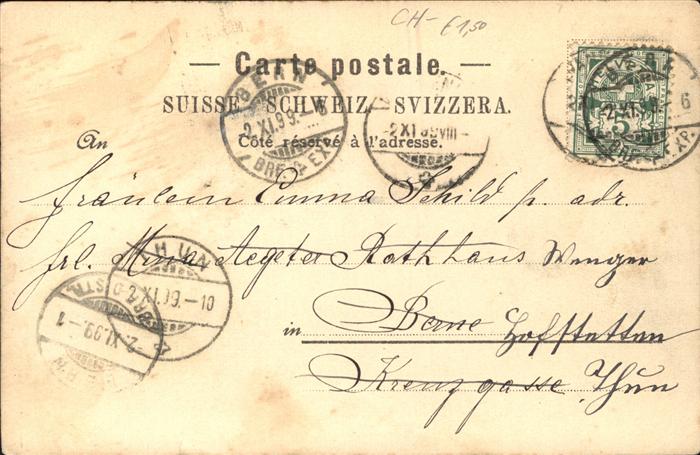 CH- €1,50
— Carte postale. —
SUISSE. SCHWEIZ. SVIZZERA.
Côté réservé à l'adresse.
BERN
-2.XI.99.-6
BRF. EXP.
-2.XI.99.VIII-
-2.XI.99.-6
BRF. EXP.
5
An
Fräulein Emma Schild p. adr.
Frl. Mina Aegeter Rathhaus Wenger
in Berne Hofstetten
Kreuzgasse, Thun
THUN
-2.XI.99.-10
-2.XI.99.-1